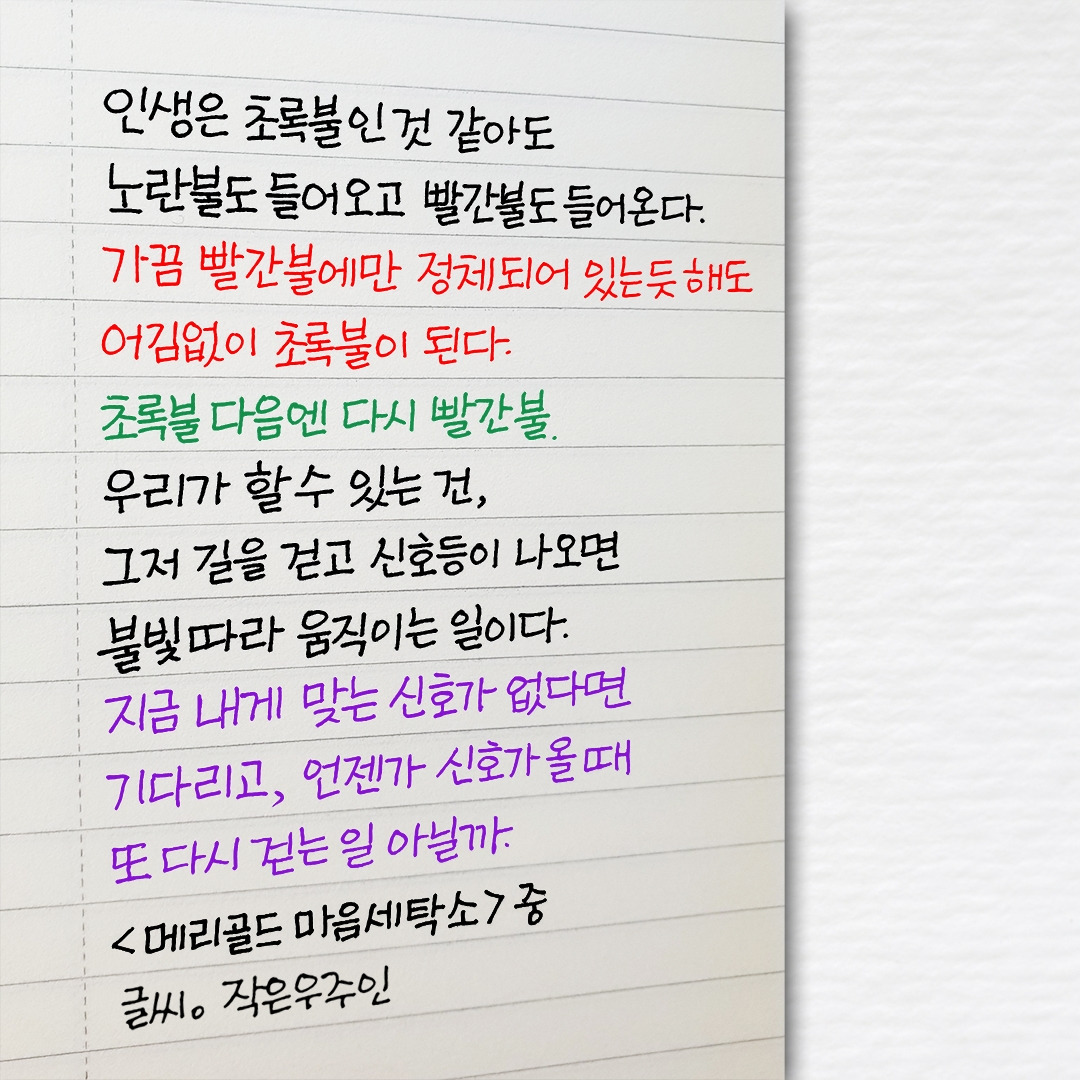 인생은 초록불인 것 같아도
노란불도 들어오고 빨간불도 들어온다.
가끔 빨간불에만 정체되어 있는듯 해도
어김없이 초록불이 된다.
초록불 다음엔 다시 빨간불.
우리가 할 수 있는 건,
그저 길을 걷고 신호등이 나오면
불빛따라 움직이는 일이다.
지금 내게 맞는 신호가 없다면
기다리고, 언젠가 신호가 올 때
또 다시 걷는 일 아닐까.
<메리골드 마음세탁소> 중
글씨。 작은우주인